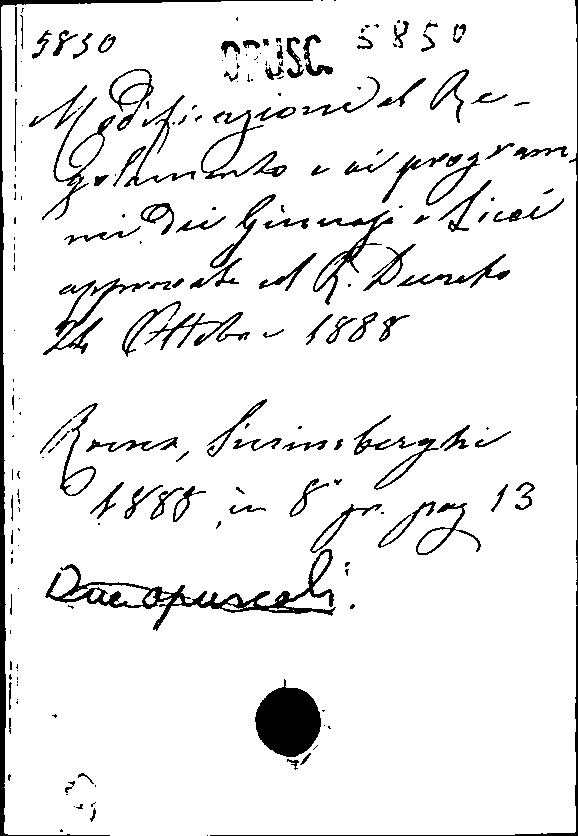 5850 OPUSC. 5850
Modificazioni al Re-
golamento e ai program,
mi dei Ginnasi e Licei
approvate col R. Decreto
24 Ottobre 1888
Roma, Sinimberghi
1888, in 8° gr. pag 13
Due opuscoli.